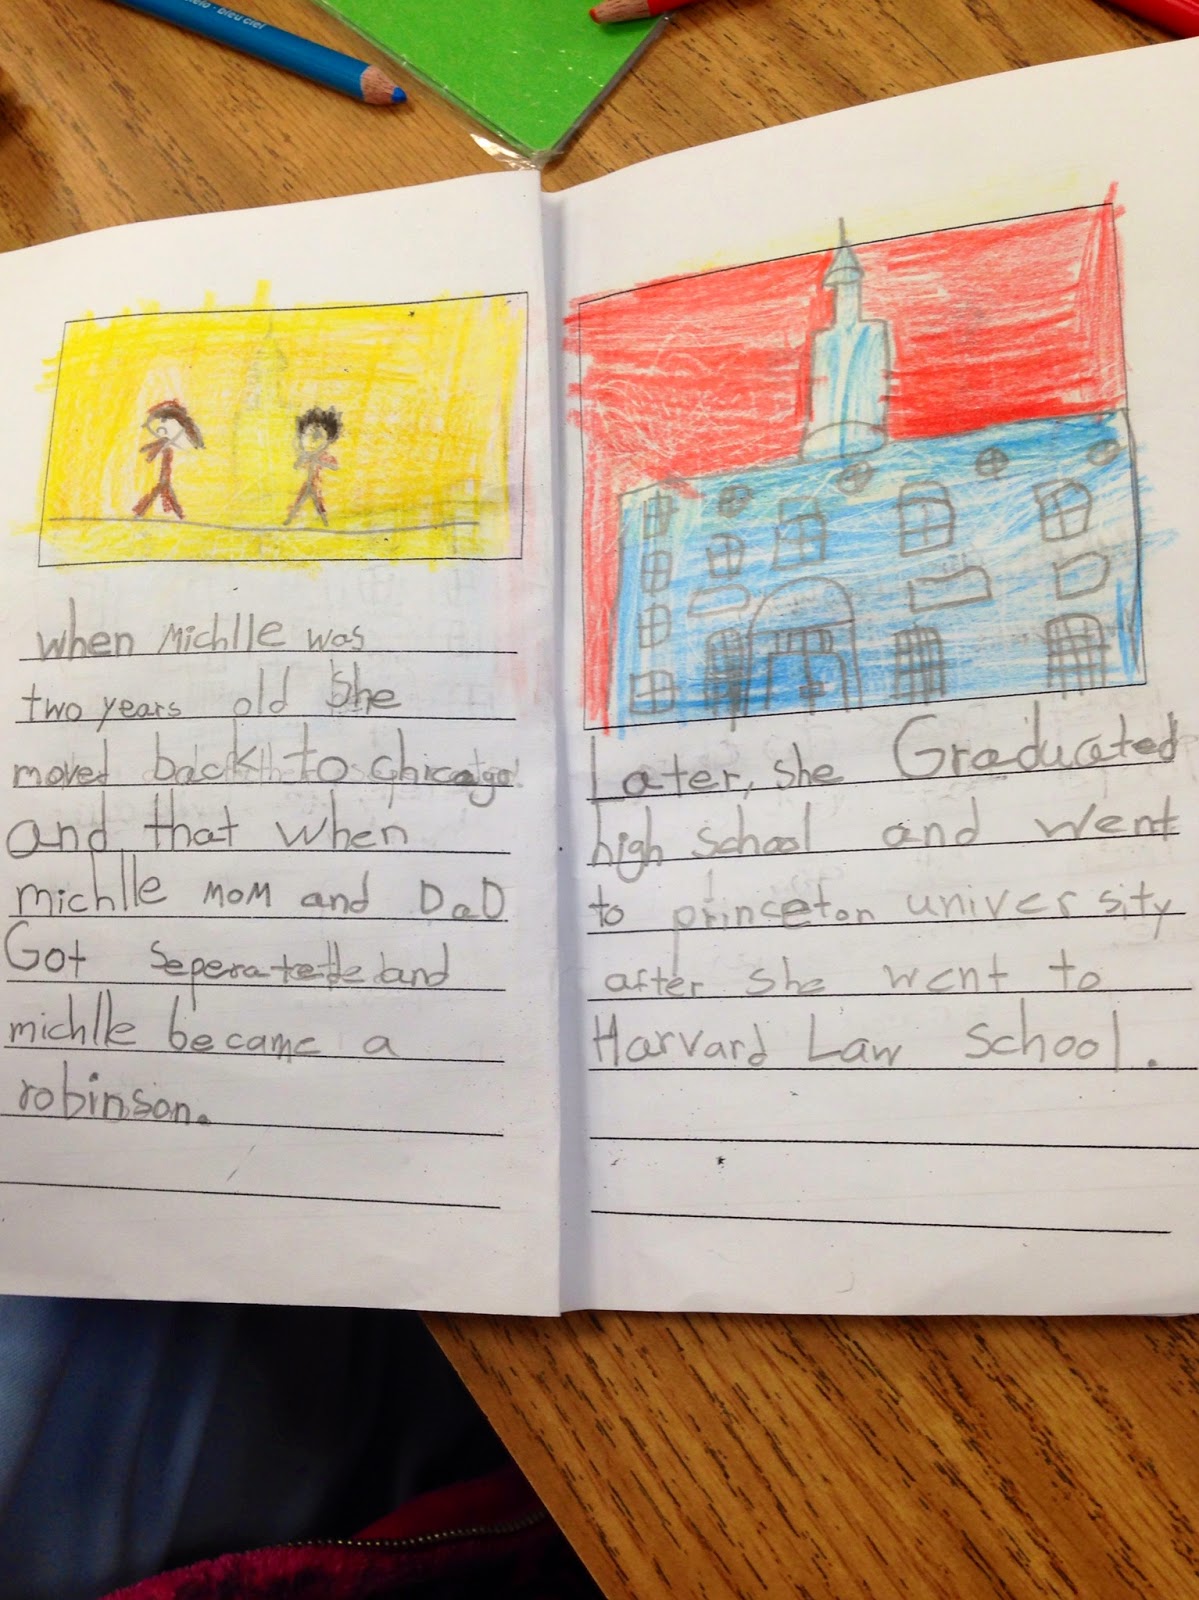 bleu ciel
when Michlle was
two years old She
moved back to chicago
and that when
michlle MOM and DaD
Got Seperated and
michlle became a
robinson.
Later, she Graduated
high school and went
to princeton university
after she went to
Harvard Law School.